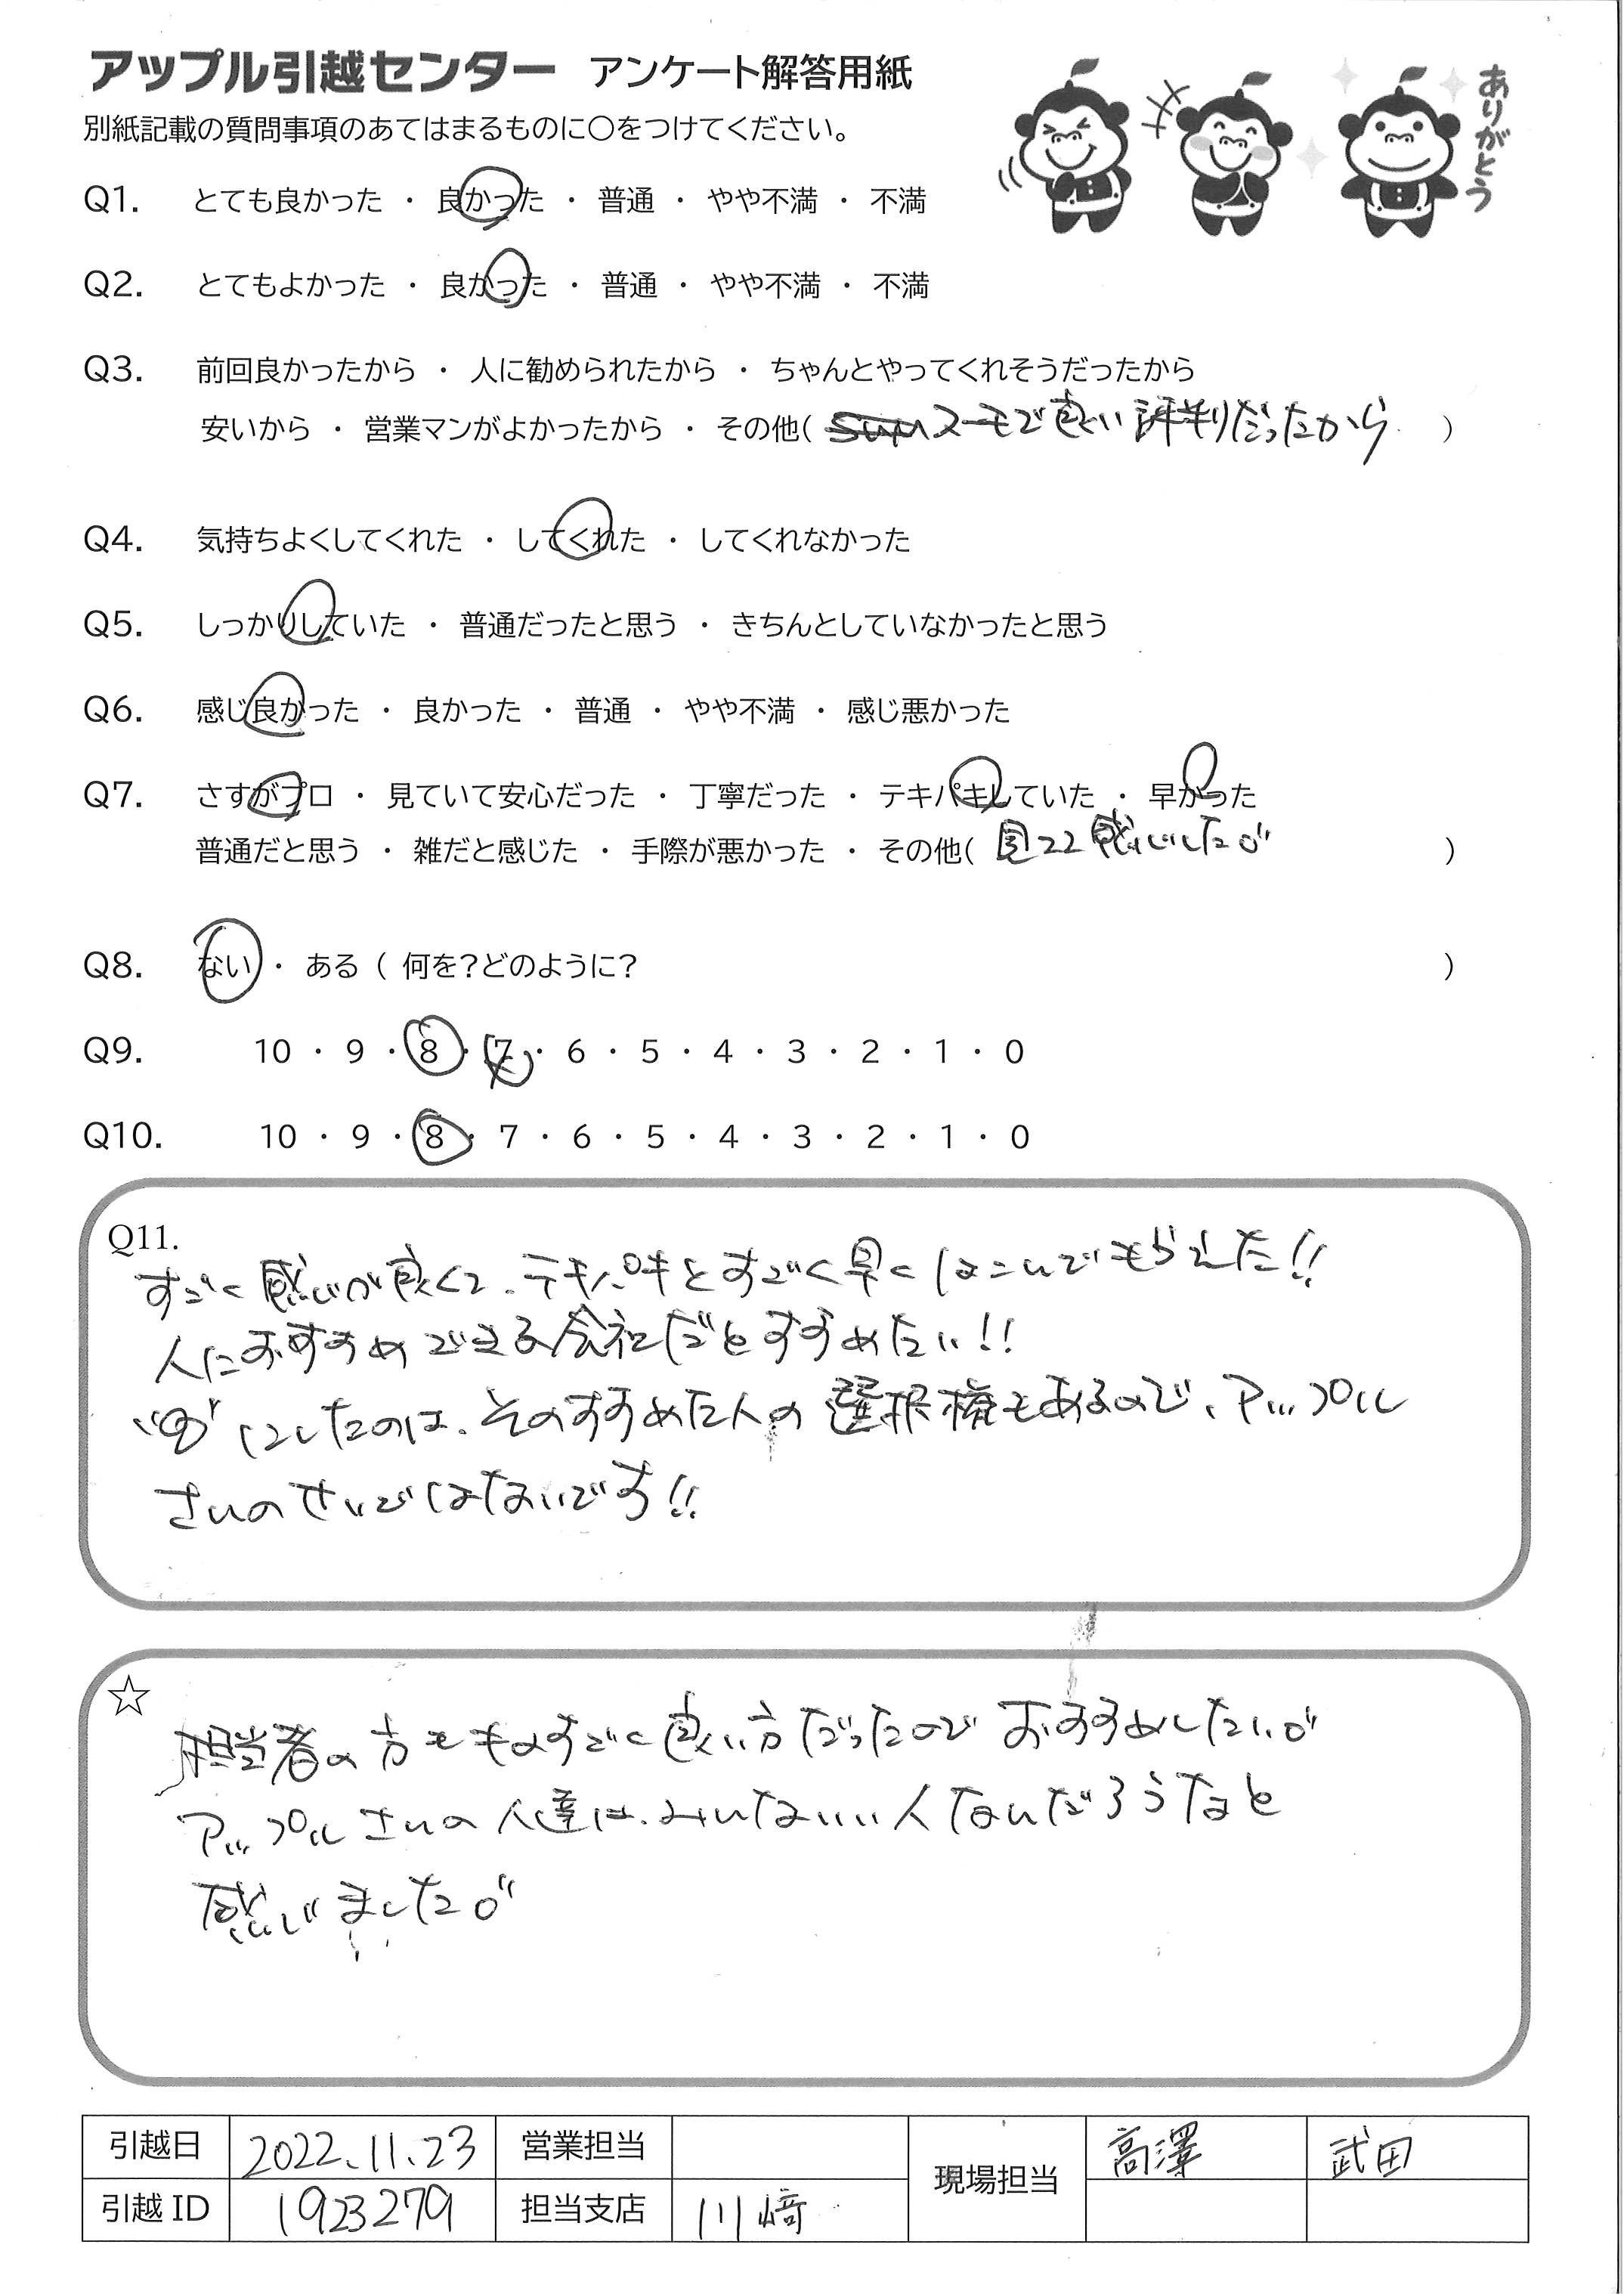 アップル引越センター アンケート解答用紙
ありがとう
別紙記載の質問事項のあてはまるものに○をつけてください。
Q1. とても良かった ・ 良かった ・ 普通 ・ やや不満 ・ 不満
Q2. とてもよかった ・ 良かった ・ 普通 ・ やや不満 ・ 不満
Q3. 前回良かったから ・ 人に勧められたから ・ ちゃんとやってくれそうだったから
安いから ・ 営業マンがよかったから ・ その他( スーモで良い評判だったから )
Q4. 気持ちよくしてくれた ・ してくれた ・ してくれなかった
Q5. しっかりしていた ・ 普通だったと思う ・ きちんとしていなかったと思う
Q6. 感じ良かった ・ 良かった ・ 普通 ・ やや不満 ・ 感じ悪かった
Q7. さすがプロ ・ 見ていて安心だった ・ 丁寧だった ・ テキパキしていた ・ 早かった
普通だと思う ・ 雑だと感じた ・ 手際が悪かった ・ その他( 見てて感心した )
Q8. ない ・ ある ( 何を?どのように? )
Q9. 10 ・ 9 ・ 8 ・ 7 ・ 6 ・ 5 ・ 4 ・ 3 ・ 2 ・ 1 ・ 0
Q10. 10 ・ 9 ・ 8 ・ 7 ・ 6 ・ 5 ・ 4 ・ 3 ・ 2 ・ 1 ・ 0
Q11.
すごく感じが良くて、テキパキとすごく早くはこんでもらえた!!
人におすすめできる会社だとすすめたい!!
"8"にしたのは、そのすすめた人の選択権もあるので、アップル
さんのせいではないです!!
☆
担当者の方もものすごく良い方だったのでおすすめしたい
アップルさんの人達は、みんないい人なんだろうなと
感じました
引越日 2022.11.23 営業担当 現場担当 高澤 武田
引越ID 1923279 担当支店 川﨑